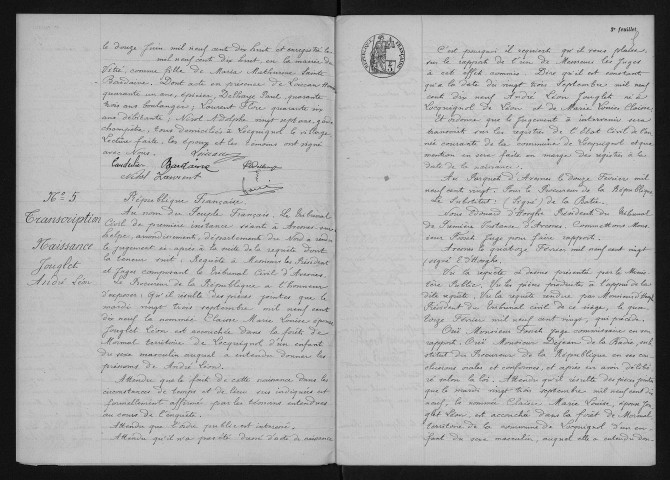 le douze Juin mil neuf cent dix huit et enregistré le
mil neuf cent dix huit, en la mairie de
comme fille de Maria Mathurine
Bardaine. Dont acte en présence de
quarante un ans, épicier, Paul, quarante
trois ans boulanger; Laurent Flore quarante six
ans débitante; Nicol Adolphe vingt sept ans, garde
champêtre, tous domiciliés à Locquignol le village.
Lecture faite, les époux et les témoins ont signé
avec Nous.
Bardaine
Nicol Laurent
N° 5
Transcription
Naissance
Jouglet
André Léon
République Française
Au nom du Peuple Français. Le Tribunal
Civil de première instance séant à Avesnes-sur-
helpe, arrondissement, département du Nord a rendu
le jugement ci-après à la suite de la requête dont
la teneur suit: Requête à Messieurs les Président
et Juges composant le Tribunal Civil d'Avesnes.
Le Procureur de la République a l'honneur
d'exposer: Qu'il résulte des pièces jointes que le
mardi vingt trois septembre mil neuf cent
dix neuf la nommée Claisse Marie Louise épouse
Jouglet Léon est accouchée dans la forêt de
Mormal territoire de Locquignol d'un enfant
du sexe masculin auquel a entendu donner les
prénoms de André Léon.
Attendu que le fait de cette naissance dans les
circonstances de temps et de lieu sus indiquées est
formellement affirmé par les témoins entendus
au cours de l'enquête.
Attendu que l'ordre public est intéressé.
Attendu qu'il n'a pas été dressé d'acte de naissance
3e feuillet
RÉPUBLIQUE FRANÇAISE
C'est pourquoi il requiert qu'il vous plaise
sur le rapport de l'un de Messieurs les Juges
à cet effet commis. Dire qu'il est constant
qu'à la date du vingt trois Septembre mil neuf
cent dix neuf André Léon Jouglet est né à
Locquignol de Léon et de Marie Louise Claisse,
Et ordonne que le jugement à intervenir sera
transcrit sur les registres de l'Etat Civil de l'an-
née courante de la commune de Locquignol et que
mention en sera faite en marge des registres à la
date de la naissance.
Au Parquet d'Avesnes le douze Février mil
neuf cent vingt. Pour le Procureur de la République
Le Substitut: (Signé) de la Batie.
Nous Edouard Président du Tribunal
de Première Instance d'Avesnes, Commettons Mon-
sieur Juge pour faire rapport.
Avesnes le quatorze Février mil neuf cent vingt
(signé)
Vu la requête ci-dessus présentée par le Minis-
tère Public. Vu les pièces produites à l'appui de la
dite requête. Vu la requête rendue par Monsieur le
Président du tribunal civil de ce siège, le qua-
torze Février mil neuf cent vingt,
Ouï Monsieur juge commissaire en son
rapport. Ouï Monsieur de la Batie, subs-
titut du Procureur de la République en ses con-
clusions orales et conformes, et après en avoir délibé-
ré selon la loi. Attendu qu'il résulte des pièces jointes
que le mardi vingt trois septembre mil neuf cent dix
neuf, la nommée Claisse, Marie Louise, épouse Jou-
glet Léon, est accouchée dans la forêt de Mormal
territoire de la commune de Locquignol d'un en-
fant du sexe masculin, auquel elle a entendu don-